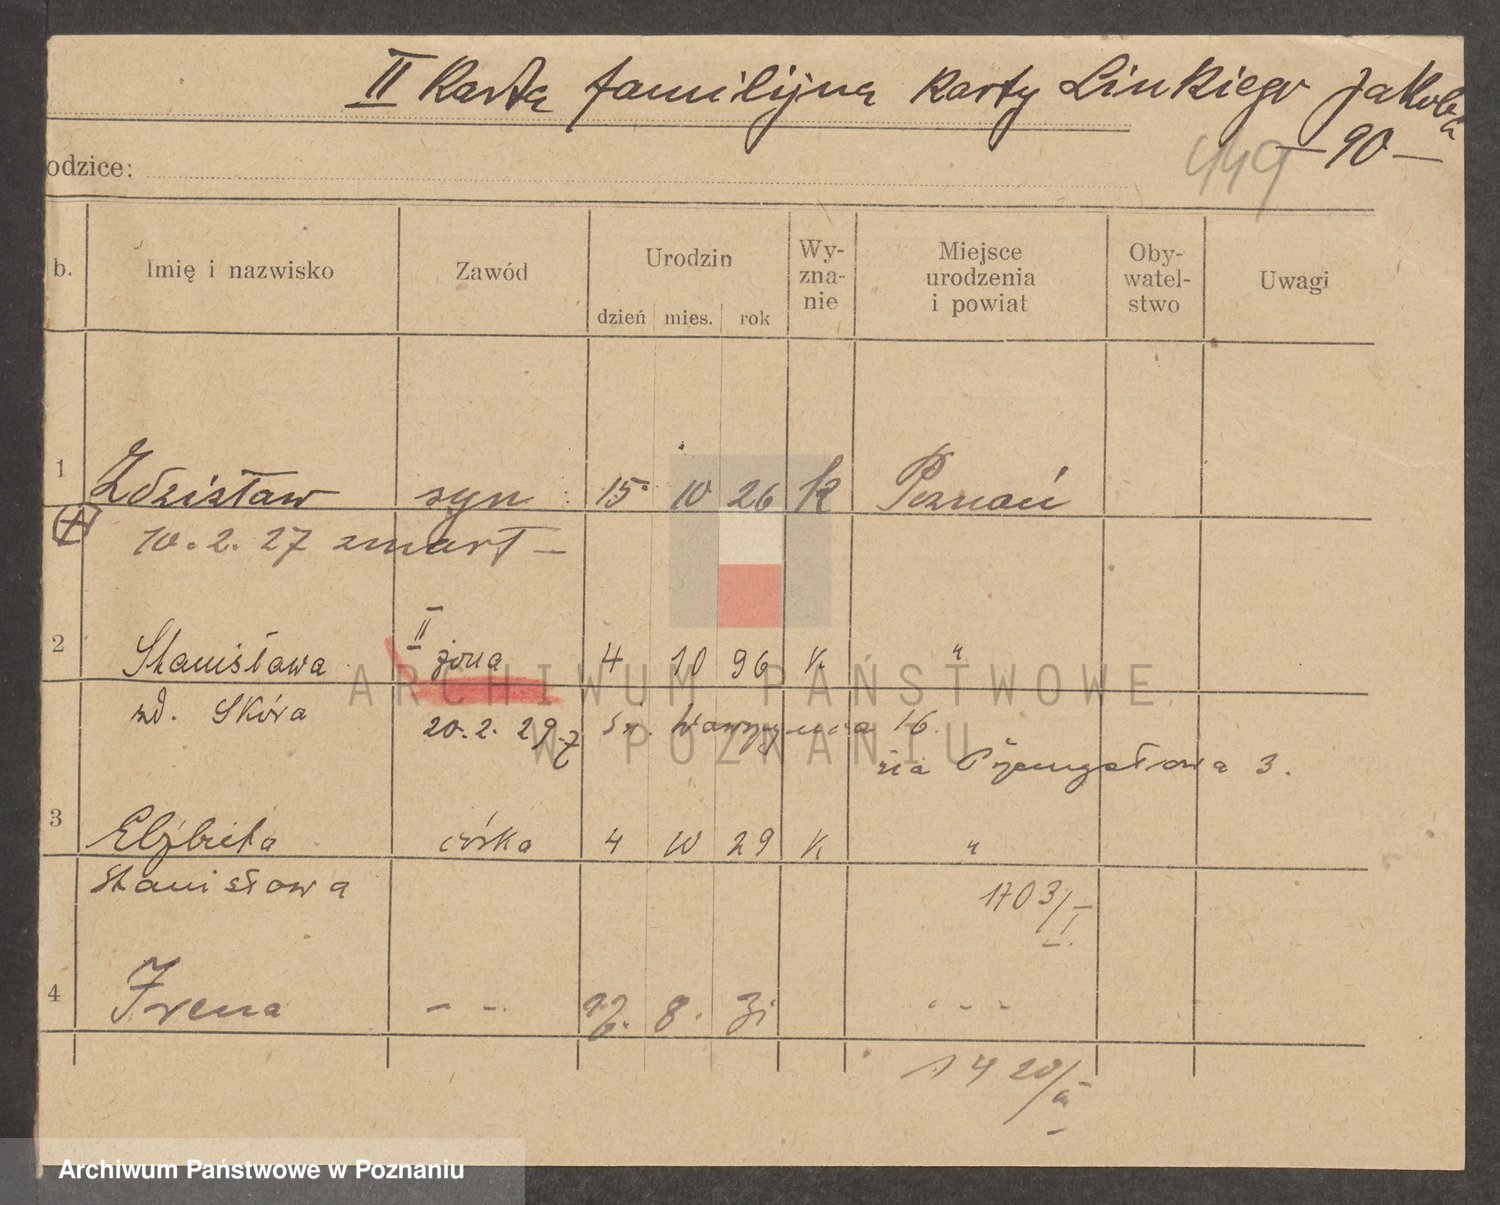 II Karta familijna Karty Linkiego Jakoba
— 90 —
449
odzice:
b. Imię i nazwisko Zawód Urodzin dzień mies. rok Wy-zna-nie Miejsce urodzenia i powiat Oby-watel-stwo Uwagi
1 Zdzisław syn 15 10 26 K Poznań
10. 2. 27 zmarł —
II
2 Stanisława żona 4 10 96 K "
zd. Skóra 20. 2. 29. z Św. Wawrzyńca 16
na Przemysłowa 3.
3 Elżbieta córka 4 10 29 K "
Stanisława 1703/I
4 Irena - - 8. 31 - - -
1420/III
ARCHIWUM PAŃSTWOWE
W POZNANIU
Archiwum Państwowe w Poznaniu